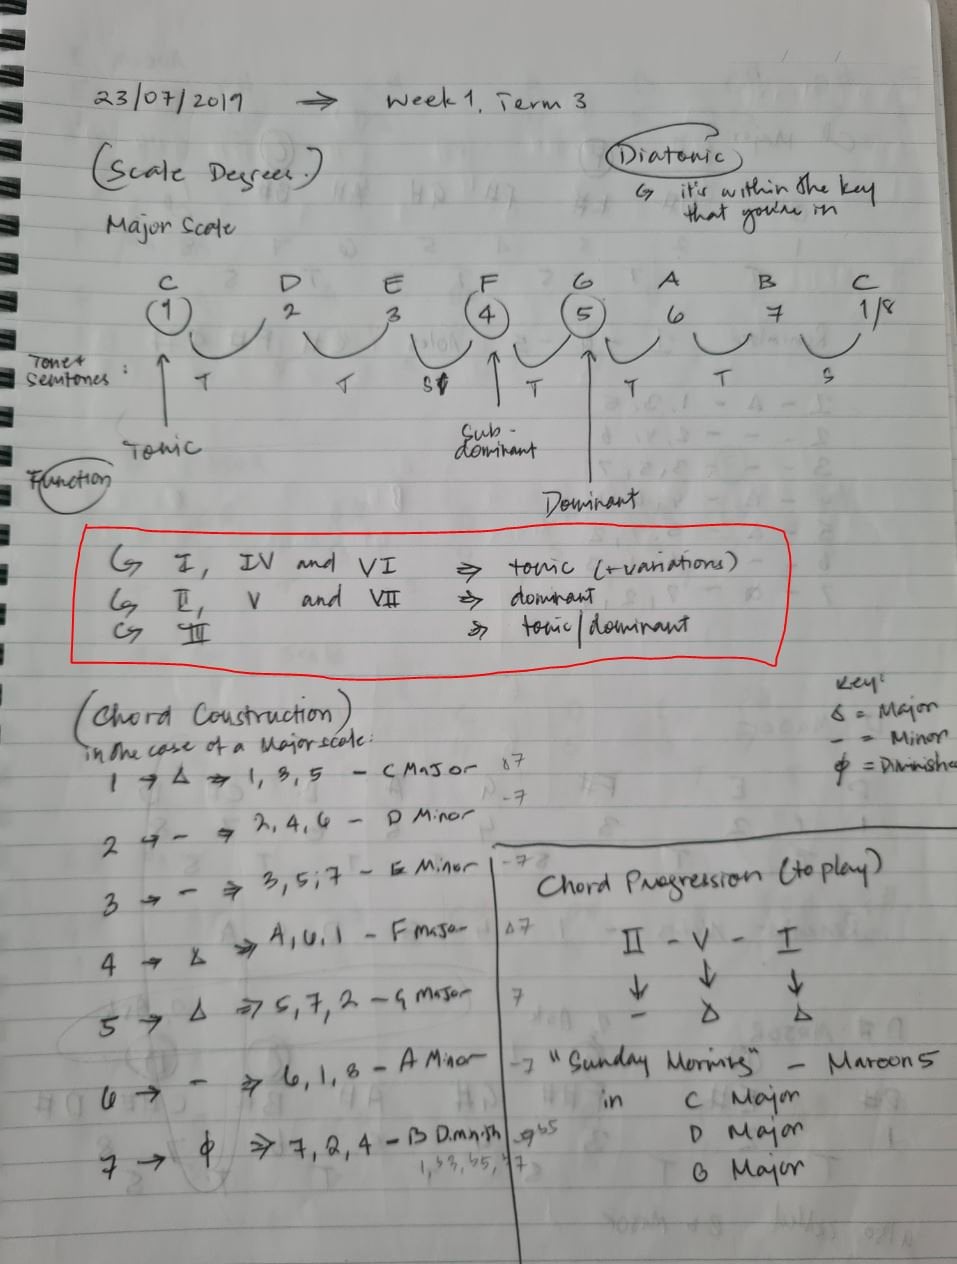 23/07/2019 ⇒ Week 1, Term 3
(Scale Degrees.)
Diatonic
↳ it's within the key
that you're in
Major Scale
C D E F G A B C
1 2 3 4 5 6 7 1/8
Tone +
Semitones :
T T S T T T S
Tonic
Sub-
dominant
Dominant
Function
↳ I, IV and VI ⇒ tonic (+variations)
↳ II, V and VII ⇒ dominant
↳ III ⇒ tonic/dominant
(Chord Construction)
in the case of a Major scale:
Key:
Δ = Major
- = Minor
ϕ = Diminishe
1 → Δ ⇒ 1, 3, 5 - C Major Δ7
2 → - ⇒ 2, 4, 6 - D Minor -7
3 → - ⇒ 3, 5, 7 - E Minor -7
4 → Δ ⇒ 4, 6, 1 - F Major Δ7
5 → Δ ⇒ 5, 7, 2 - G Major 7
6 → - ⇒ 6, 1, 3 - A Minor -7
7 → ϕ ⇒ 7, 2, 4 - B Diminish
1, b3, b5, b7
Chord Progression (to play)
II - V - I
↓ ↓ ↓
- Δ Δ
"Sunday Morning" - Maroon 5
in C Major
D Major
G Major